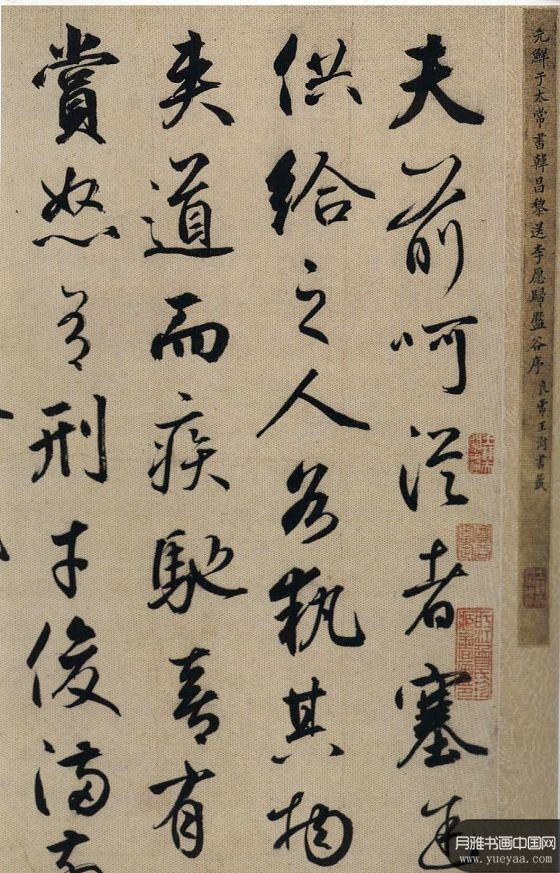 元鮮于太常書韓昌黎送李愿歸盤谷序 良常王澍書籤
夫前呵從者塞途
供給之人各執其物
夾道而疾馳喜有
賞怒有刑才俊滿前
月雅书画中国网
www.yueyaa.com